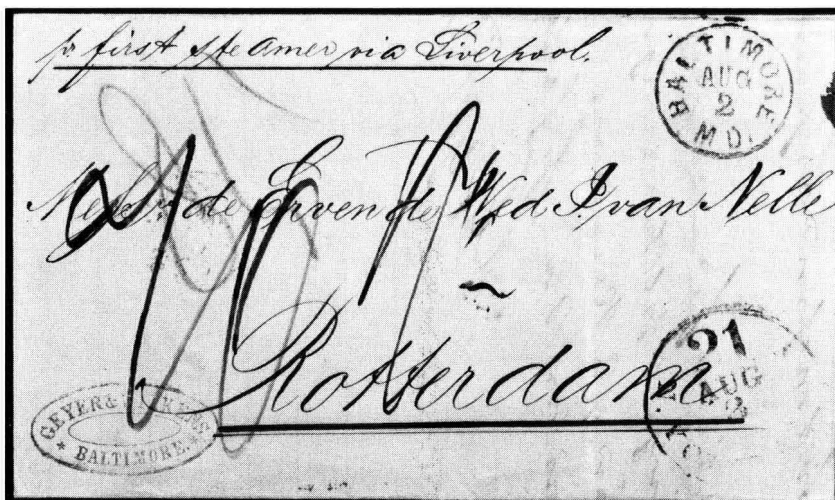 pr first steamer via Liverpool.
BALTIMORE MD.
AUG
2
de Erven de Wed J. van Nelle
Rotterdam
21
AUG
GEYER &
BALTIMORE.